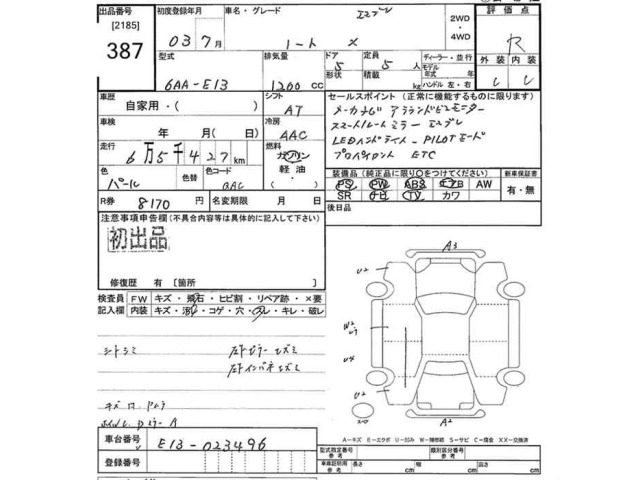 出品番号 初度登録年月 車名・グレード エスブレ 2WD・4WD 評価点
[2185]
387
03年7月 ノート X R
型式 排気量 ドア 形状 定員 積載 ディーラー・並行 モデル年式 年 ハンドル 左・右 外装 内装
6AA-E13 1200cc 5 5人 kg
車歴 自家用・( ) シフト AT
セールスポイント(正常に機能するものに限ります)
メーカナビ アラウンドビューモニター
スマートルームミラー エマブレ
LEDヘッドライト PILOTモード
プロパイロット ETC
車検 年 月( 日) 冷房 AAC
走行 6万5千427km 燃料 ガソリン・軽油・
色 パール 色替 色コード QAC
R券 8170円 名変期限 月 日
装備品(純正品に限り○をつけてください) 新車保証書
PS PW ABS エアB AW 有・無
SR ナビ TV カワ
注意事項申告欄(不具合内容等は具体的に記入して下さい) 後日品
初出品
修復歴 有 [箇所 ]
検査員記入欄 FW キズ・飛石・ヒビ割・リペア跡・×要
内装 キズ・汚レ・コゲ・穴・スレ・キレ・破レ
A3
U2
W2
U4
U2
A2
シートシミ
キズ
A
A-キズ E-エクボ U-凹み W-補修跡 S-サビ C-腐食 XX-交換済
車台番号 E13-023496
登録番号
型式指定番号 類別区分番号
車庫証明用参考 長さ cm 幅 cm 高さ cm